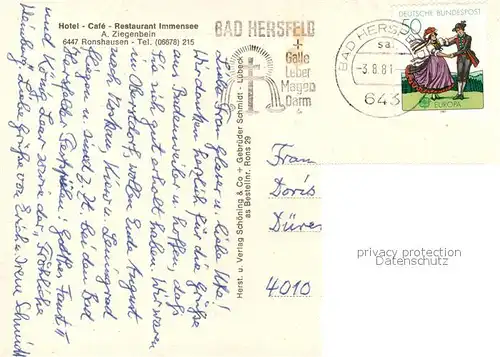 Hotel - Café - Restaurant Immensee
A. Ziegenbein
6447 Ronshausen - Tel. (06678) 215
Liebe Frau Glaser u. liebe Uta!
Wir danken herzlich für die Grüße
aus Badenweiler u. hoffen, daß
Sie sich gut erholt haben. Wir waren
in Oberstdorf, wollen Ende August
nach Moskau, Kiew u. Leningrad
fliegen u. sind z. Zt. bei den Bad
Hersfelder Festspielen: Goethes Faust II
und König Lear sowie der "Fröhliche
Weinberg". Liebe Grüße von Irene Schmidt
Herst. u. Verlag Schöning & Co + Gebrüder Schmidt - Lübeck
as Bestellnr. Rons 29
BAD HERSFELD
+
Galle
Leber
Magen
Darm
BAD HERSF
sa
-3.8.81
643
50
DEUTSCHE BUNDESPOST
EUROPA
Frau
Doris
Düre
4010
privacy protection
Datenschutz